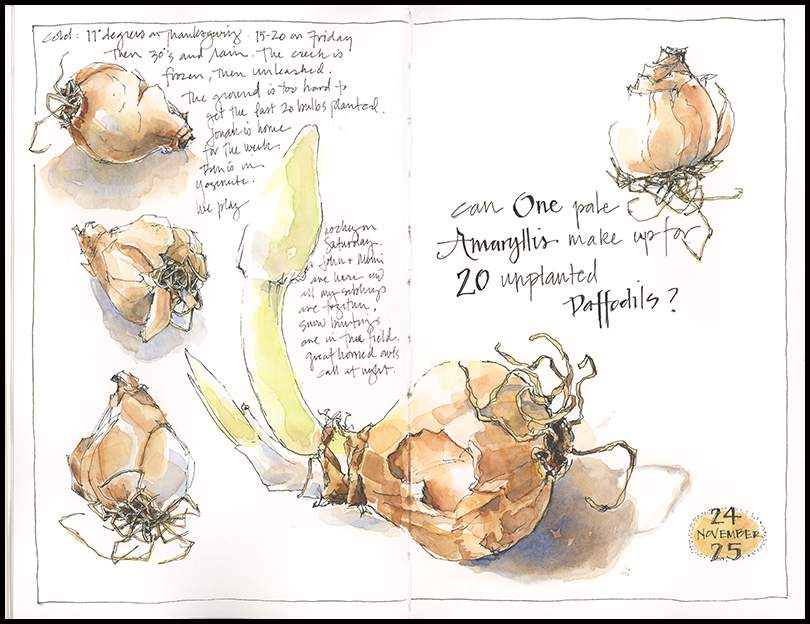 cold: 11° degrees on Thanksgiving. 15-20 on Friday
Then 30's and rain. The creek is
frozen, then unleashed.
The ground is too hard to
get the last 20 bulbs planted.
Jonah is home
for the week.
is in
Yosemite.
We play
hockey on
Saturday.
John + Mimi
are here and
all my siblings
are together.
Snow buntings
are in the field.
great horned owls
call at night.
can One pale
Amaryllis make up for
20 unplanted
Daffodils?
24
NOVEMBER
25